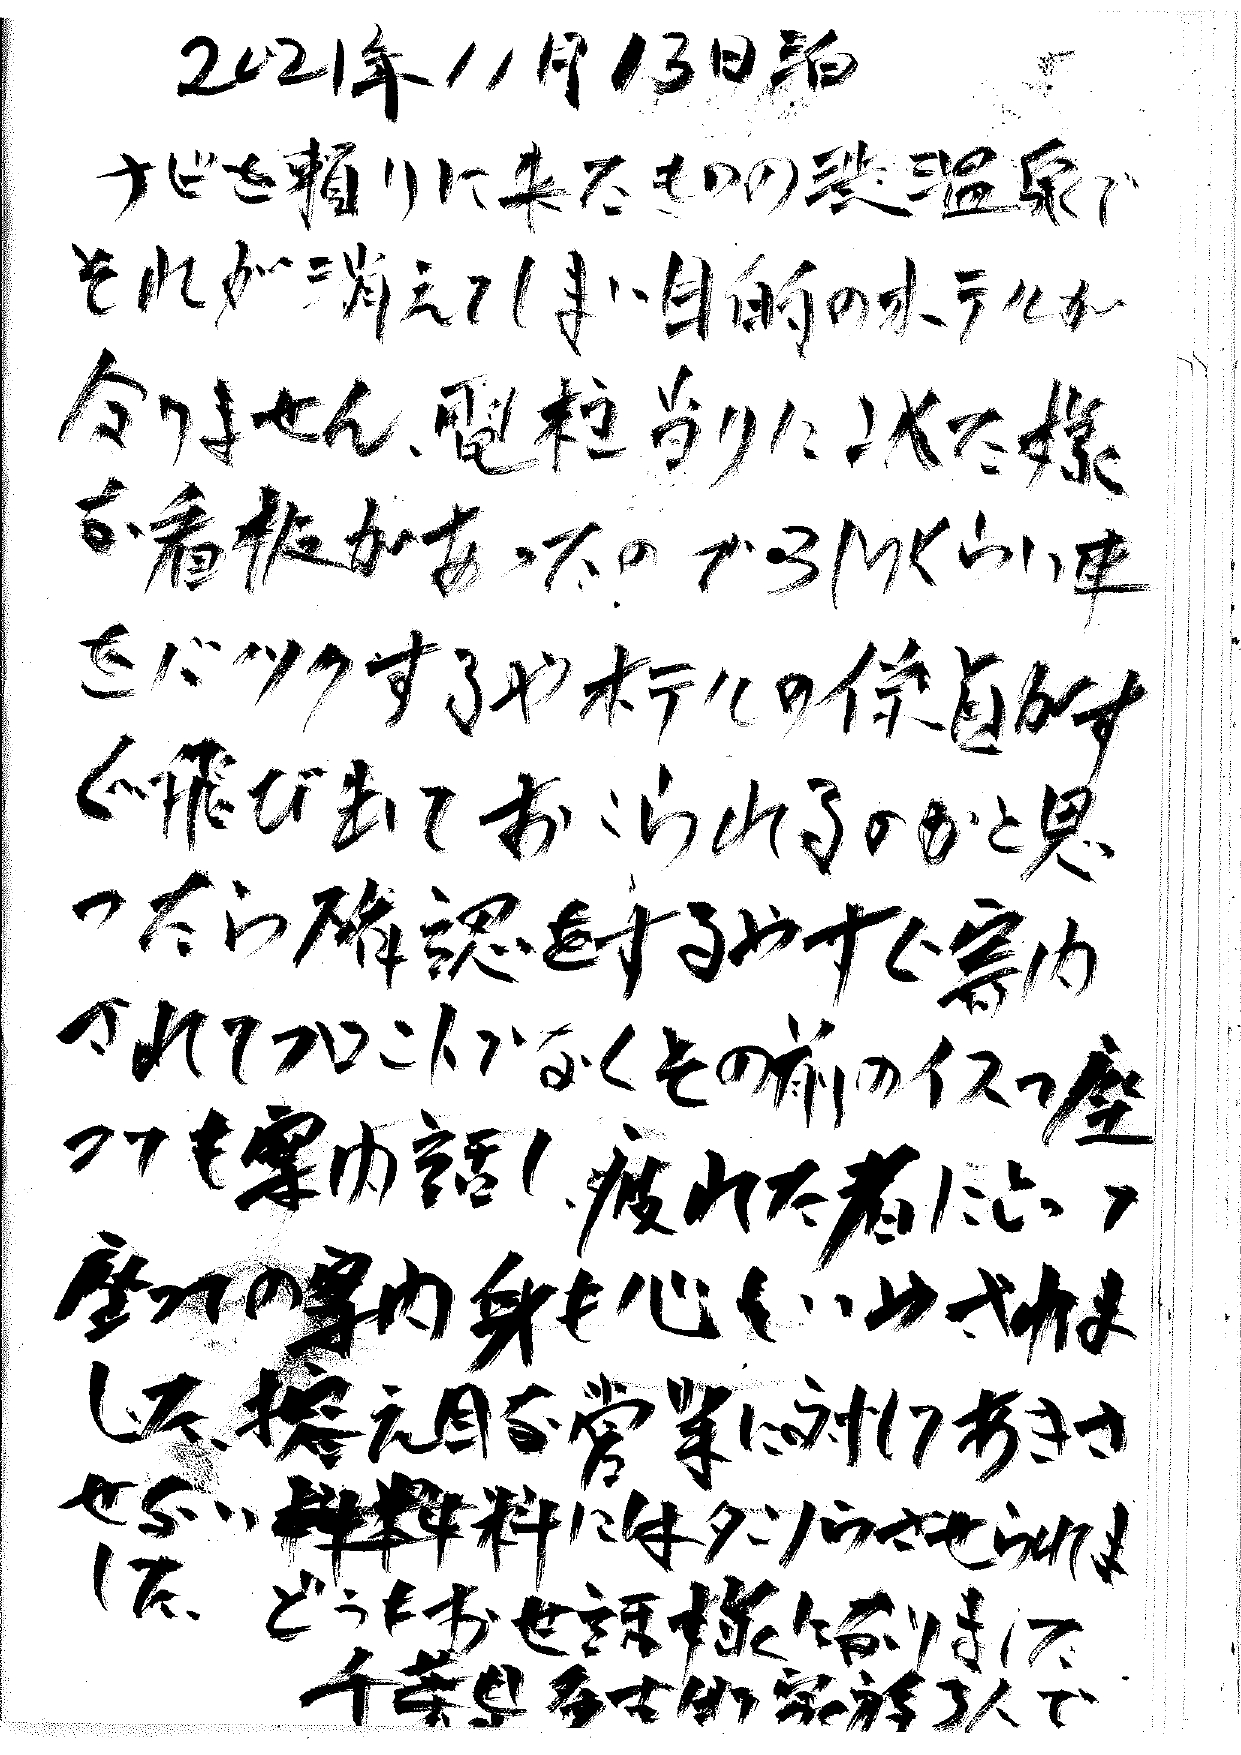 2021年11月13日泊
ナビを頼りに来たものの渋温泉で
それが消えてしまい目的のホテルが
分りません、電柱当りに似た様
な看板があったので31Mくらい車
をバックするやホテルの係員がす
ぐ飛び出ておこられるのかと思
ったら確認をするやすぐ案内
されてフロントでなくその前のイスへ座
っても案内話し、疲れた者にとって
座っての案内身も心もいやされま
した、控え目な営業に対してあきさ
せない 料料にはタンノウさせられま
した、 どうもお世話様になりました
千葉県多古町家族3人で